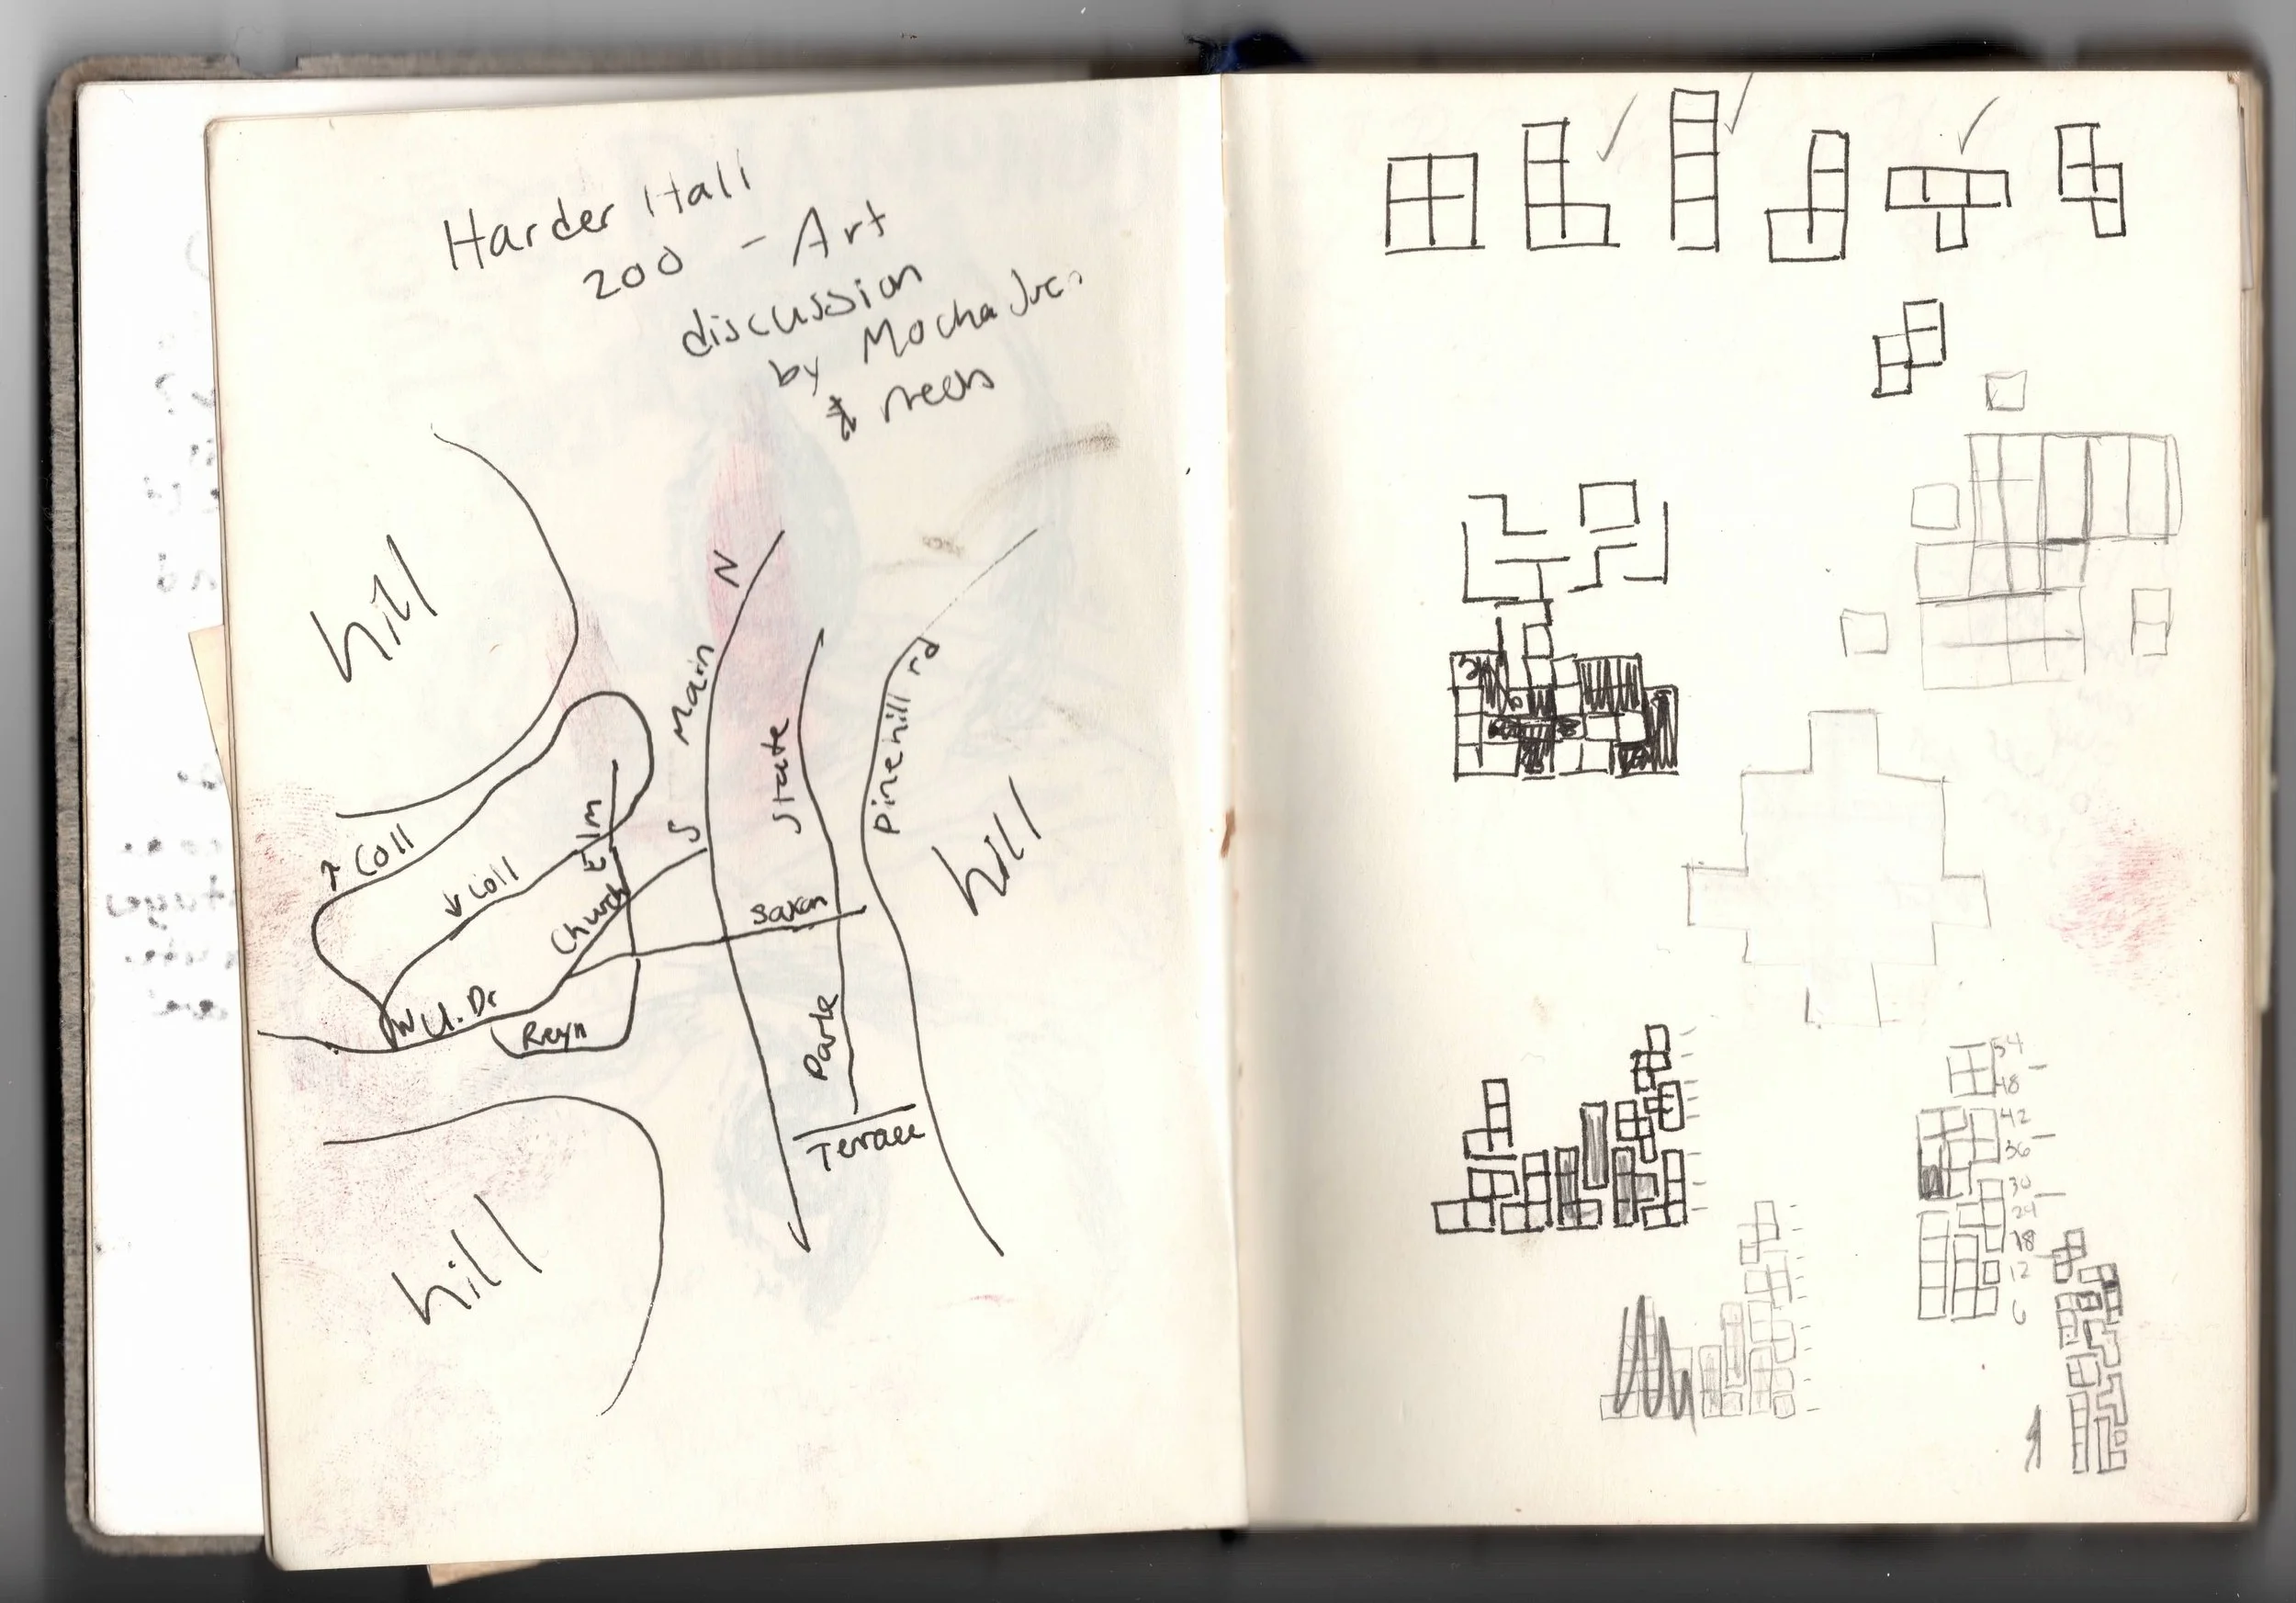 Harder Hall
200 - Art
discussion
by Mocha Joe
&
hill
N
Main
S
State
Pinehill rd
hill
↑ Coll
↓ Coll
Elm
Church
Saxon
W U. Dr
Reyn
Park
Terrace
hill
54
48
42
36
30
24
18
12
6